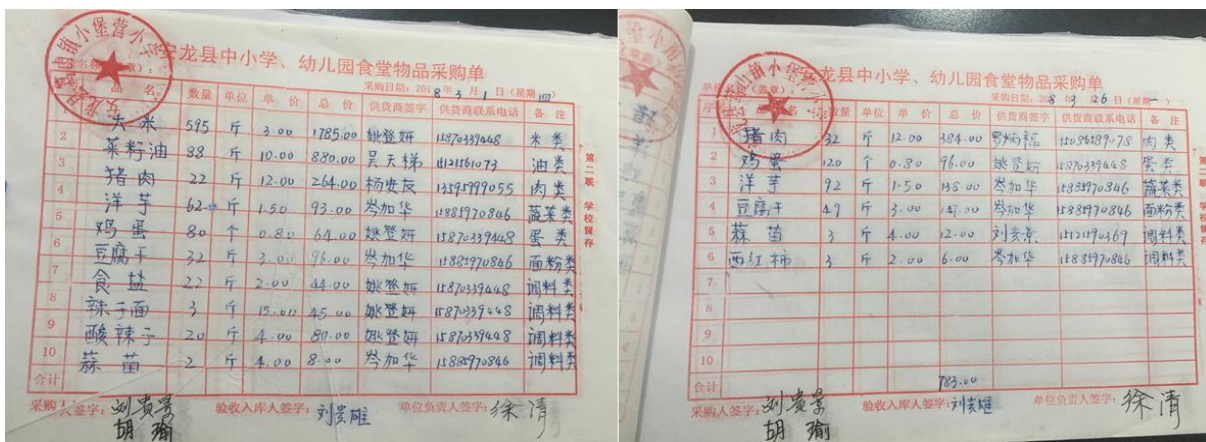 安龙县中小学、幼儿园食堂物品采购单
采购日期：2018年3月1日（星期四）
品名 数量 单位 单价 总价 供货商签字 供货商联系电话 备注
1 大米 595 斤 3.00 1785.00 姚登妍 15870339448 米类
2 菜籽油 88 斤 10.00 880.00 吴天梯 油类
3 猪肉 22 斤 12.00 264.00 13595999055 肉类
4 洋芋 62 斤 1.50 93.00 岑加华 15885970846 蔬菜类
5 鸡蛋 80 个 0.80 64.00 姚登妍 15870339448 蛋类
6 豆腐干 32 斤 3.00 96.00 岑加华 15885970846 面粉类
7 食盐 22 斤 2.00 44.00 姚登妍 15870339448 调料类
8 辣子面 3 斤 15.00 45.00 姚登妍 15870339448 调料类
9 酸辣子 20 斤 4.00 80.00 姚登妍 15870339448 调料类
10 蒜苗 2 斤 4.00 8.00 岑加华 15885970846 调料类
合计
采购人签字：刘贵景 验收入库人签字：刘贵雄 单位负责人签字：徐清
胡瑜
第二联 学校留存
安龙县中小学、幼儿园食堂物品采购单
单位（盖章）：
采购日期：2018年3月26日（星期一）
序 数量 单位 单价 总价 供货商签字 供货商联系电话 备注
1 猪肉 32 斤 12.00 384.00 肉类
2 鸡蛋 120 个 0.80 96.00 姚登妍 15870339448 蛋类
3 洋芋 92 斤 1.50 138.00 岑加华 15885970846 蔬菜类
4 豆腐干 49 斤 3.00 147.00 岑加华 15885970846 面粉类
5 蒜苗 3 斤 4.00 12.00 刘贵景 15121590369 调料类
6 西红柿 3 斤 2.00 6.00 岑加华 15885970846 调料类
7
8
9
10
合计 783.00
采购人签字：刘贵景 验收入库人签字：刘贵雄 单位负责人签字：徐清
胡瑜
第二联 学校留存